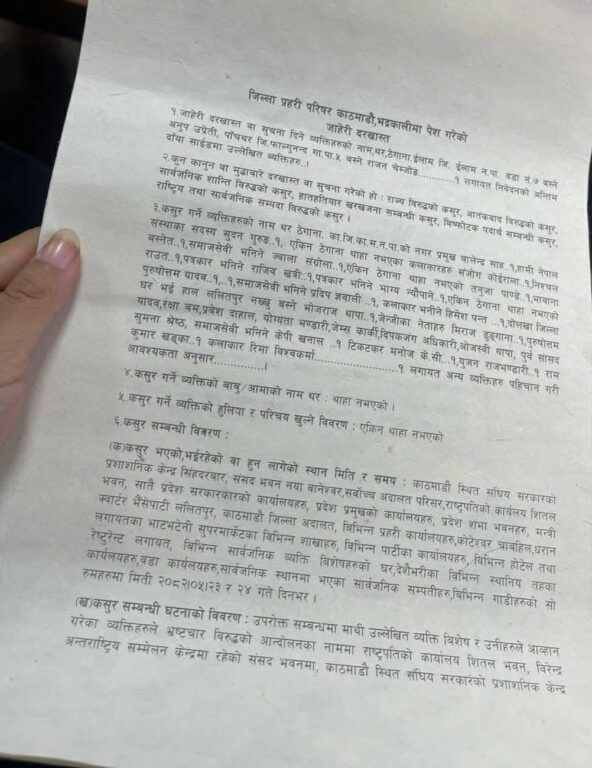 जिल्ला प्रहरी परिषर काठमाडौ,भद्रकालीमा पेश गरेको
जाहेरी दरखास्त
१.जाहेरी दरखास्त वा सूचना दिने व्यक्तिहरुको नाम,थर,ठेगाना.ईलाम जि. ईलाम न.पा. वडा नं.७ बस्ने
अनुप उप्रेती, पाँचथर जि.फाल्गुनन्द गा.पा.५ बस्ने राजन चेम्जोङ............१ लगायत निवेदनको अन्तिम
दाँया साईडमा उल्लेखित व्यक्तिहरु..।
२.कुन कानुन वा मुद्धाबारे दरखास्त वा सुचना गरेको हो : राज्य विरुद्धको कसुर, आतंकवाद विरुद्धको कसुर,
सार्वजनिक शान्ति विरुद्धको कसुर, हातहतियार खरखजना सम्बन्धी कसुर, विष्फोटक पदार्थ सम्बन्धी कसुर,
राष्ट्रिय तथा सार्वजनिक सम्पदा विरुद्धको कसुर ।
३.कसुर गर्ने व्यक्तिहरुको नाम थर ठेगाना. का.जि.का.म.न.पा.को नगर प्रमुख बालेन्द्र साह..१,हामी नेपाल
संस्थाका सदस्य सुदन गुरुङ..१, एकिन ठेगाना थाहा नभएका कलाकारहरु संजोग कोईराला..१,निश्चल
बस्नेत..१,समाजसेवी भनिने ज्वाला संग्रौला..१,एकिन ठेगाना थाहा नभएको तनुजा पाण्डे..१,भावाना
राउत..१,पत्रकार भनिने राजिव खत्री..१,पत्रकार भनिने भाग्य न्यौपाने..१,एकिन ठेगाना थाहा नभएको
पुरुषोत्तम यादव..१,..१,समाजसेवी भनिने प्रदिप ज्ञवाली ..१, कलाकार भगीने हिमेश पन्त ..१,दोलखा जिल्ला
घर भई हाल ललितपुर नख्खु बस्ने भोजराज थापा..१,जेन्जीका नेताहरु मिराज ढुङ्गाना..१,पुरुषोत्तम
यादव,रक्षा बम,प्रवेश दाहाल, योग्यता भण्डारी,जेम्स कार्की,दिपकजंग अधिकारी,ओजस्वी थापा, पुर्व सांसद
सुमना श्रेष्ठ, समाजसेवी भनिने केपी खनाल ..१ टिकटकर मनोज के.सी..१,युजन राजभण्डारी.१ राम
कुमार खड्का..१ कलाकार रिमा विश्वकर्मा...............................१ लगायत अन्य व्यक्तिहरु पहिचान गरी
आवश्यकता अनुसार.................।
४.कसुर गर्ने व्यक्तिको बाबु /आमाको नाम थर : थाहा नभएको ।
५.कसुर गर्ने व्यक्तिको हुलिया र परिचय खुल्ने विवरण : एकिन थाहा नभएको
६.कसुर सम्बन्धी विवरण :
(क)कसुर भएको,भईरहेको वा हुन लागेको स्थान मिति र समय : काठमाडौ स्थित संघिय सरकारको
प्रशाशनिक केन्द्र सिंहदरबार, संसद भवन नया बानेश्वर,सर्वोच्च अदालत परिसर,राष्ट्रपतिको कार्यलय शितल
भवन, सातै प्रदेश सरकारकारको कार्यालयहरु, प्रदेश प्रमुखको कार्यालयहरु, प्रदेश शभा भवनहरु, मन्त्री
क्वार्टर भैंसेपाटी ललितपुर, काठमाडौ जिल्ला अदालत, विभिन्न प्रहरी कार्यालयहरु,कोटेश्वर चाबहिल,धरान
लगायतका भाटभटेनी सुपरमार्केटका विभिन्न शाखाहरु, विभिन्न पार्टीका कार्यालयहरु, विभिन्न होटेल तथा
रेष्टुरेन्ट लगायत, विभिन्न सार्वजनिक व्यक्ति बिशेषहरुको घर,देशैभरीका विभिन्न स्थानिय तहका
कार्यालयहरु,वडा कार्यलयहरु,सार्वजनिक स्थानमा भएका सार्वजनिक सम्पतीहरु,विभिन्न गाडीहरुको सो
रुमहरुमा मिती २०८२।०५।२३ र २४ गते दिनभर ।
(ख)कसुर सम्बन्धी घटनाको विबरण : उपरोक्त सम्बन्धमा माथी उल्लेखित व्यक्ति बिशेष र उनीहरुले आव्हान
गरेका व्यक्तिहरुले भ्रष्टचार विरुद्धको आन्दोलनका नाममा राष्ट्रपतिको कार्यालय शितल भवन, विरेन्द्र
अन्तराष्ट्रिय सम्मेलन केन्द्रमा रहेको संसद भवनमा, काठमाडौ स्थित संघिय सरकारको प्रशाशनिक केन्द्र